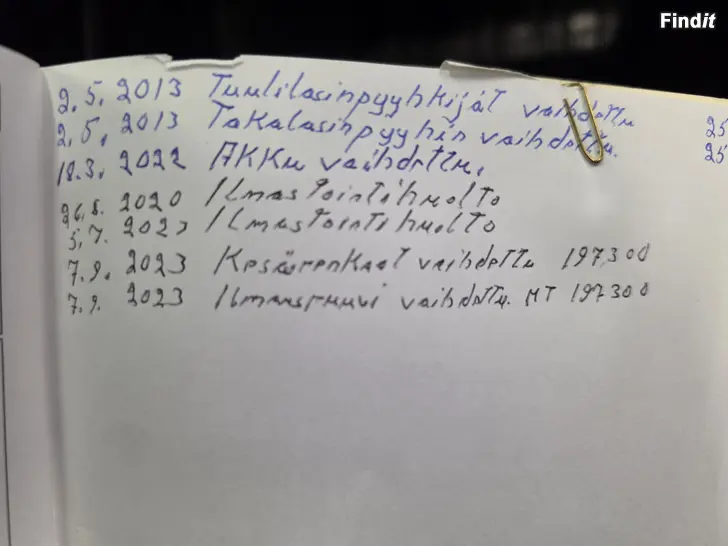 Findit
2.5.2013 Tuulilasinpyyhkijät vaihdettu 25
2.5.2013 Takalasinpyyhin vaihdettu. 25
18.3.2022 AKKu vaihdettu.
26.8.2020 Ilmastointihuolto
5.7.2023 Ilmastointihuolto
7.9.2023 Kesärenkaat vaihdettu 197300
7.9.2023 Ilmansuuvi vaihdettu. MT 197300